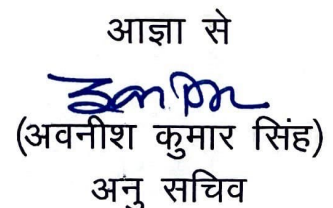 आज्ञा से
(अवनीश कुमार सिंह)
अनु सचिव